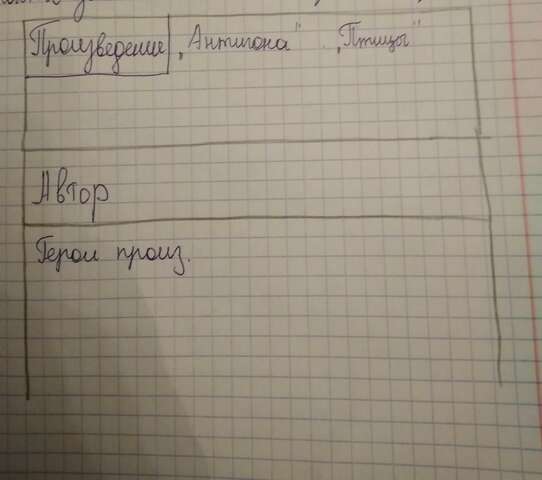 Произведение „Антигона" „Птицы"
Автор
Герои произ.